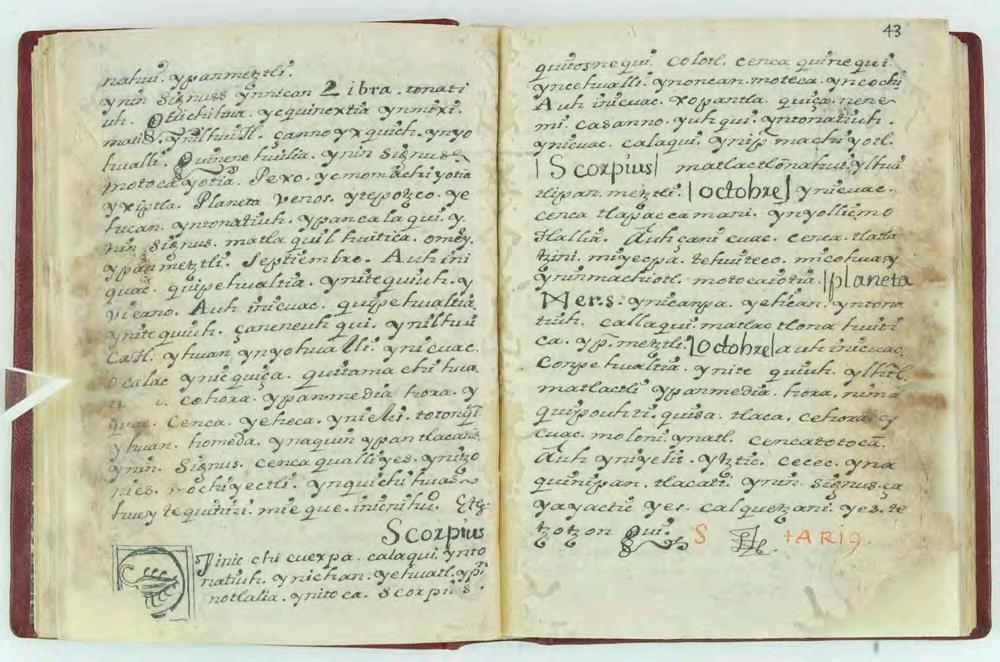 nahui. ypanmetztli.
ynin Signuss ynnican Libra. tonati
uh. Oluchihua. yequinextia ynmixi.
matis. ynilhuitl. çannoyxquich. ynyo
hualli. Quinenehuilia. ynin Signus
motocayotia. Pexo. yemomachiyotia
yxiptla. Planeta Venos. ytepotzco. ye
hucan. yntonatiuh. ypancalaqui. y
nin Signus. matlaquilhuitica. omey.
ypanmetztli. Septiembre. Auhini
quac. quipehualtia. ynitequiuh. y
Auh inicuac. quipehualtia
ynitequiuh. çaneneuhqui. ynilhui
catl. yhuan ynyohualli. ynicuac.
ocalac yniquiça. quitamachihua.
cehora. ypanmedia hora. y
quac. cenca. yeheca. ynieli. totonqui
yhuan. homeda. ynaquin ypantlacati.
ynin. Signus. cenca qualli yes. ynitzo
nies. mochiyectli. ynquichihuas
huey tequitini. mieque. inipilhu. Etz.
Scorpius
Jinic chicuexpa. calaqui. ynto
natiuh. ynichan. yehuatl. yp
notlalia. ynitoca. Scorpius.
43
quitosnequi. Colotl. cenca quinequi.
ynecehualli. ynoncan. moteca. yncochi
Auh inicuac. xopantla. quiça. nene
mi. Casanno. yuhqui. yntonatiuh.
ynicuac. calaqui. ynisp machiyotl.
|Scorpius| matlactlonahui. ylhui
tlipan. metztli. |octobre| ynicuac.
cenca tlapaccamani. ynyolliemo
tlallia. Auh çanicuac. cenca. tlatla
tzini. miyecpa. tehuiteco. micohuay
yninmachiotl. motocaiotia. |planeta
Mers. ynicanpa. yehican. yntona
tiuh. callaqui. matlactlona huiti
ca. yp. metztli. |Octobre| auh inicuac.
Conpehualtia. ynite quiuh. ylhtl.
matlactli ypanmedia. hora. nima
quipouhti. quisa. tlaca. cehora. y
cuac. moloni. ynatl. cencatotoca.
Auh yniyelis. yztic. cecec. yna
quinipan. tlacati. ynin. signus. ça
yayactic yes. calquetzani. yes. te
tzotzon qui. S +ARI9.